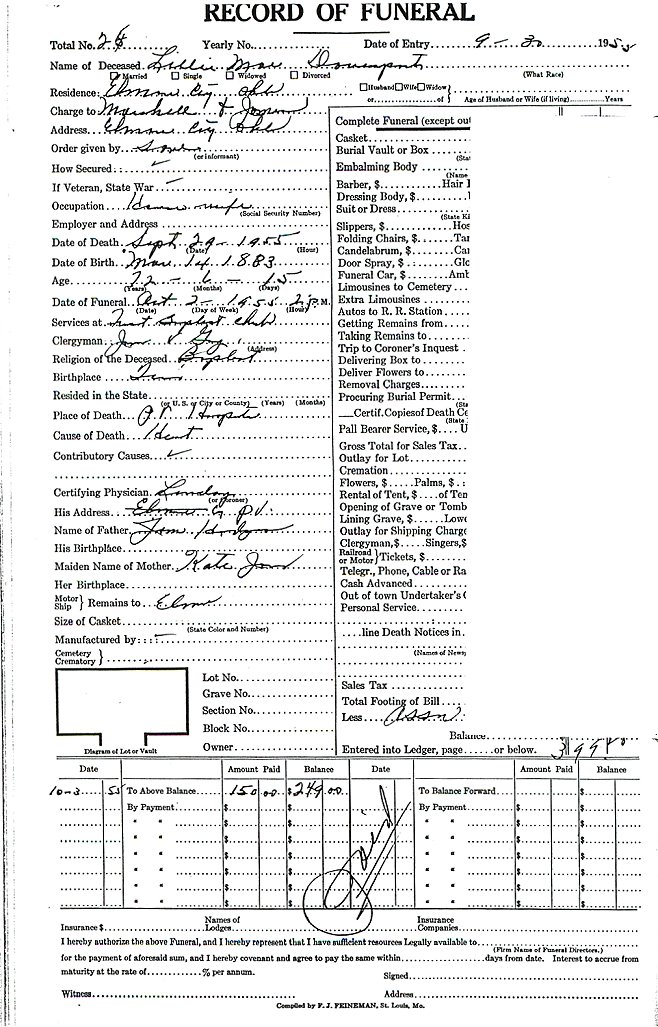 RECORD OF FUNERAL
Total No. 28 Yearly No. Date of Entry 9-30 1955
Name of Deceased Lillie Mae Davenport (What Race)
Married Single Widowed Divorced
Residence: Elmore City Okla Husband Wife Widow or of Age of Husband or Wife (if living) Years
Charge to Marshall & Jason
Address Elmore City Okla
Order given by (or informant)
How Secured: ✓
If Veteran, State War –
Occupation House wife (Social Security Number)
Employer and Address
Date of Death Sept 29 - 1955 (Date) (Hour)
Date of Birth Mar 14 1883
Age 72 - 6 - 15 (Years) (Months) (Days)
Date of Funeral Oct 2 - 1955 2 P.M. (Date) (Day of Week) (Hour)
Services at First Baptist Church
Clergyman V. (Address)
Religion of the Deceased Baptist
Birthplace Tenn
Resided in the State (or U. S. or City or County) (Years) (Months)
Place of Death P.V. Hospital
Cause of Death Heart
Contributory Causes ✓
Certifying Physician Lindsay (or Coroner)
His Address Elmore C P.V.
Name of Father Tom
His Birthplace
Maiden Name of Mother Kate
Her Birthplace
Motor Ship } Remains to Elmore
Size of Casket (State Color and Number)
Manufactured by: –
Cemetery Crematory }
Lot No.
Grave No.
Section No.
Block No.
Owner
Diagram of Lot or Vault
Complete Funeral (except out
Casket
Burial Vault or Box (Stat
Embalming Body (Name
Barber, $ Hair
Dressing Body, $
Suit or Dress (State Ki
Slippers, $ Hos
Folding Chairs, $ Tar
Candelabrum, $ Ca
Door Spray, $ Glo
Funeral Car, $ Amb
Limousines to Cemetery
Extra Limousines
Autos to R. R. Station
Getting Remains from
Taking Remains to
Trip to Coroner's Inquest
Delivering Box to
Deliver Flowers to
Removal Charges
Procuring Burial Permit (Sta
Certif. Copies of Death Ce (State
Pall Bearer Service, $ U
Gross Total for Sales Tax
Outlay for Lot
Cremation
Flowers, $ Palms, $
Rental of Tent, $ of Ten
Opening of Grave or Tomb
Lining Grave, $ Lowe
Outlay for Shipping Charge
Clergyman, $ Singers, $
Railroad or Motor } Tickets, $
Telegr., Phone, Cable or Ra
Cash Advanced
Out of town Undertaker's C
Personal Service
line Death Notices in
(Names of News
Sales Tax
Total Footing of Bill
Less Assn.
Balance
Entered into Ledger, page or below. 399
Date Amount Paid Balance Date Amount Paid Balance
10-3 55 To Above Balance 150 00 $249 00 To Balance Forward
By Payment $ $ By Payment $ $
" " $ $ " " $ $
" " $ $ " " $ $
" " $ $ " " $ $
" " $ $ " " $ $
" " $ $ " " $ $
Paid
Insurance $ Names of Lodges Insurance Companies
I hereby authorize the above Funeral, and I hereby represent that I have sufficient resources Legally available to
(Firm Name of Funeral Directors.)
for the payment of aforesaid sum, and I hereby covenant and agree to pay the same within days from date. Interest to accrue from
maturity at the rate of % per annum. Signed
Witness Address
Compiled by F. J. FEINEMAN, St. Louis, Mo.